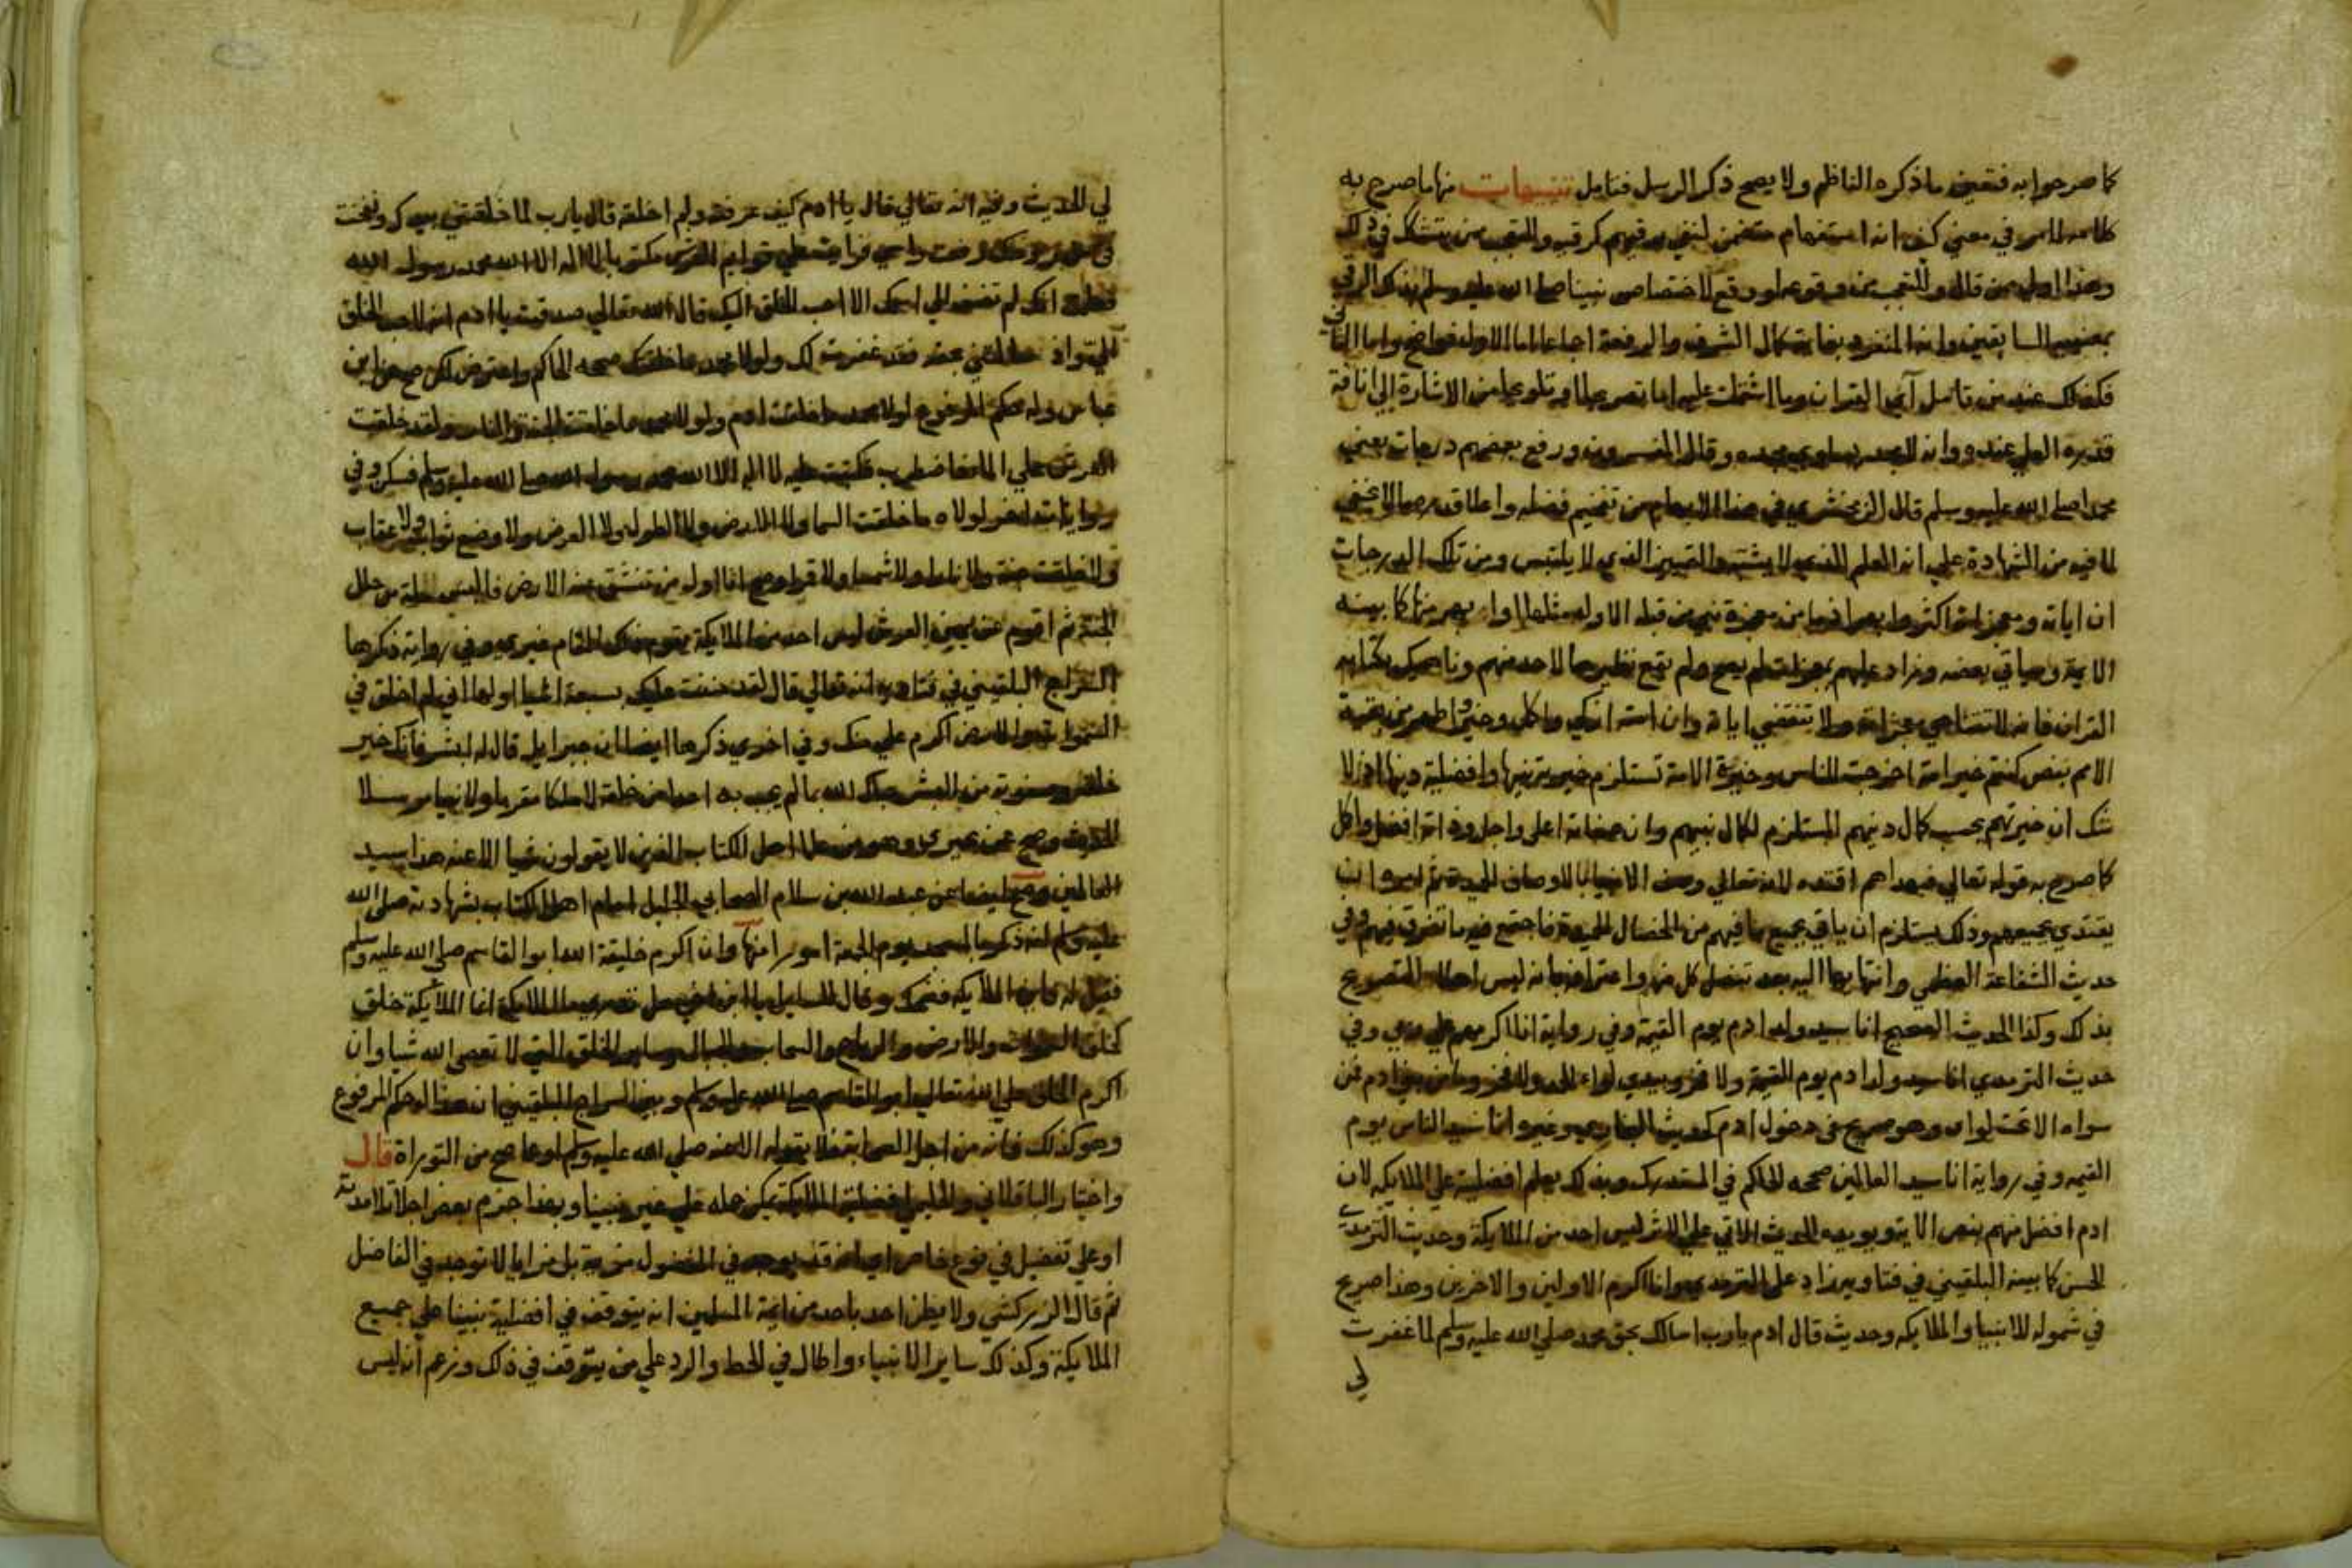 كما صرحوا به فتعين ما ذكره الناظم ولا يصح ذكر الرسل فتامل تنبيهات منها ما صرح به
كلامه المار في معنى كيف انه استفهام متضمن لنفي رقيهم كرقيه والتعجب ممن يتشكك في ذلك
وهذا اولى من قال والتعجب من وقوعه لو وقع لاختصاص نبينا صلى الله عليه وسلم بذلك الرقي
بمعنييه السابقين وانه المنفرد بغاية كمال الشرف والرفعة اجماعا اما الاول فواضح واما الثاني
فكذلك عند من تامل آي القران وما اشتملت عليه اما تصريحا او تلويحا من الاشارة الى انافة
قدره العلي عنده وانه لا مجد يساوي مجده وقال المفسرون ورفع بعضهم درجات يعني
محمدا صلى الله عليه وسلم قال الزمخشري في هذا الابهام من تفخيم فضله واعلا قدره ما لا يخفى
لما فيه من الشهادة على انه العلم الذي لا يشتبه والمتميز الذي لا يلتبس ومن تلك الدرجات
ان اياته ومعجزاته اكثر وابهر اذ ما من معجزة نبي من قبله الا وله مثلها او ابهر منها كما بينه
الايمة وسياتي بعضه وزاد عليهم بمعجزات لم يصح ولم يقع نظيرها لاحد منهم وناهيك بكتابه
القران فانه لا تتناهى معجزاته ولا تنقضي اياته وان امته ازكى واكمل وخير واطهر من بقية
الامم بنص كنتم خير امة اخرجت للناس وخيرية الامة تستلزم خيرية نبيها وافضلية دينها اذ لا
شك ان خيريتهم بحسب كمال دينهم المستلزم لكمال نبيهم وان صفاته اعلى واجل وذاته افضل واكمل
كما صرح به قوله تعالى فبهداهم اقتده لانه تعالى وصف الانبيا بالاوصاف الحميدة ثم امره ان
يقتدي بجميعهم وذلك يستلزم ان ياتي بجميع ما فيهم من الخصال الحميدة فاجتمع فيه ما تفرق فيهم وفي
حديث الشفاعة العظمى وانتهايها اليه بعد تنصل كل منها واعترافه بانه ليس اهلا لها التصريح
بذلك وكذا الحديث الصحيح انا سيد ولد ادم يوم القيمة وفي رواية انا اكرمهم على ربي وفي
حديث الترمذي انا سيد ولد ادم يوم القيمة ولا فخر وبيدي لواء الحمد ولا فخر وما من نبي ادم فمن
سواه الا تحت لواي وهو صريح في دخول ادم كحديث البخاري وغيره انا سيد الناس يوم
القيمه وفي رواية انا سيد العالمين صححه الحاكم في المستدرك وبذلك يعلم افضليته على الملايكه لان
ادم افضل منهم بنص الاية ويويده الحديث الاتي على الاثر ليس احد من الملايكة وحديث الترمذي
الحسن كما بينه البلقيني في فتاويه زاد على الترمذي وانا اكرم الاولين والاخرين وهذا صريح
في شموله للانبيا والملايكه وحديث قال ادم يارب اسالك بحق محمد صلى الله عليه وسلم لما غفرت
لي
لي الحديث وفيه انه تعالى قال يا ادم كيف عرفته ولم اخلقه قال يارب لما خلقتني بيدك ونفخت
في من روحك رفعت راسي فرايت على قوايم العرش مكتوبا لا اله الا الله محمد رسول الله
فعلمت انك لم تضف الى اسمك الا احب الخلق اليك قال الله تعالى صدقت يا ادم انه لاحب الخلق
الي واذ سالتني بحقه فقد غفرت لك ولولا محمد ما خلقتك صححه الحاكم واعترض لكن صح عن ابن
عباس وله حكم المرفوع لولا محمد ما خلقت ادم ولولا محمد ما خلقت الجنة والنار ولقد خلقت
العرش على الما فاضطرب فكتبت عليه لا اله الا الله محمد رسول الله صلى الله عليه وسلم فسكن وفي
روايات اخر لولاه ما خلقت السما ولا الارض ولا الطول ولا العرض ولا وضع ثواب ولا عقاب
ولا خلقت جنة ولا نارا ولا شمسا ولا قمرا وصح انا اول من تنشق عنه الارض فالبس حلة من حلل
الجنة ثم اقوم عن يمين العرش ليس احد من الملايكة يقوم ذلك المقام غيري وفي رواية ذكرها
السراج البلقيني في فتاويه انه تعالى قال لقد مننت عليك بسبعة اشيا اولها اني لم اخلق في
السموات والارض اكرم علي منك وفي اخرى ذكرها ايضا ان جبرايل قال له ابشر فانك خير
خلقه وصفوته من البشر حباك الله بما لم يحب به احدا من خلقه لا ملكا مقربا ولا نبيا مرسلا
الحديث وصح عن بحيرى وهو من علما اهل الكتاب الذين لا يقولون شيا الا عنه هذا سيد
العالمين وصح ايضا عن عبد الله بن سلام الصحابي الجليل امام اهل الكتاب بشهادته صلى الله
عليه وسلم انه ذكر بالمسجد يوم الجمعة امورا منها وان اكرم خليقة الله ابو القاسم صلى الله عليه وسلم
فقيل له فاين الملايكه فضحك وقال للسايل يا ابن اخي هل تدري ما الملايكة انما الملايكة خلق
كخلق السموات والارض والرياح والسحاب والجبال وساير الخلق التي لا تعصى الله شيا وان
اكرم الخلق على الله تعالى ابو القاسم صلى الله عليه وسلم وبين السراج البلقيني ان هذا له حكم المرفوع
وهو كذلك فانه من اجل الصحابة فلا يقوله الا عنه صلى الله عليه وسلم او عما صح من التوراة قال
واختيار الباقلاني والحليمي افضلية الملايكة يمكن حمله على غير نبينا وبهذا جزم بعض اجلا تلامذته
او على تفضيل في نوع خاص اي لانه قد يوجد في المفضول مزية بل مزايا لا توجد في الفاضل
ثم قال الزركشي ولا يظن احد باحد من ايمة المسلمين انه يتوقف في افضلية نبينا على جميع
الملايكة وكذلك ساير الانبياء واطال في الحط والرد على من يتوقف في ذلك وزعم أنه ليس